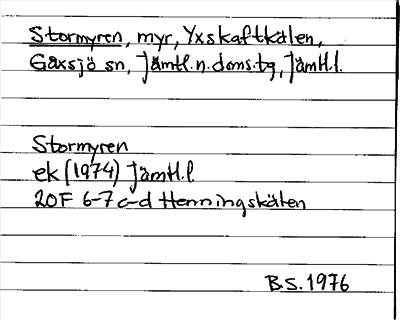 Stormyren, myr, Yxskaftkälen,
Gåxsjö sn, Jämtl.n.doms.tg, Jämtl.l.
Stormyren
ek (1974) Jämtl.l
20F 6-7 c-d Henningskälen
B.S. 1976